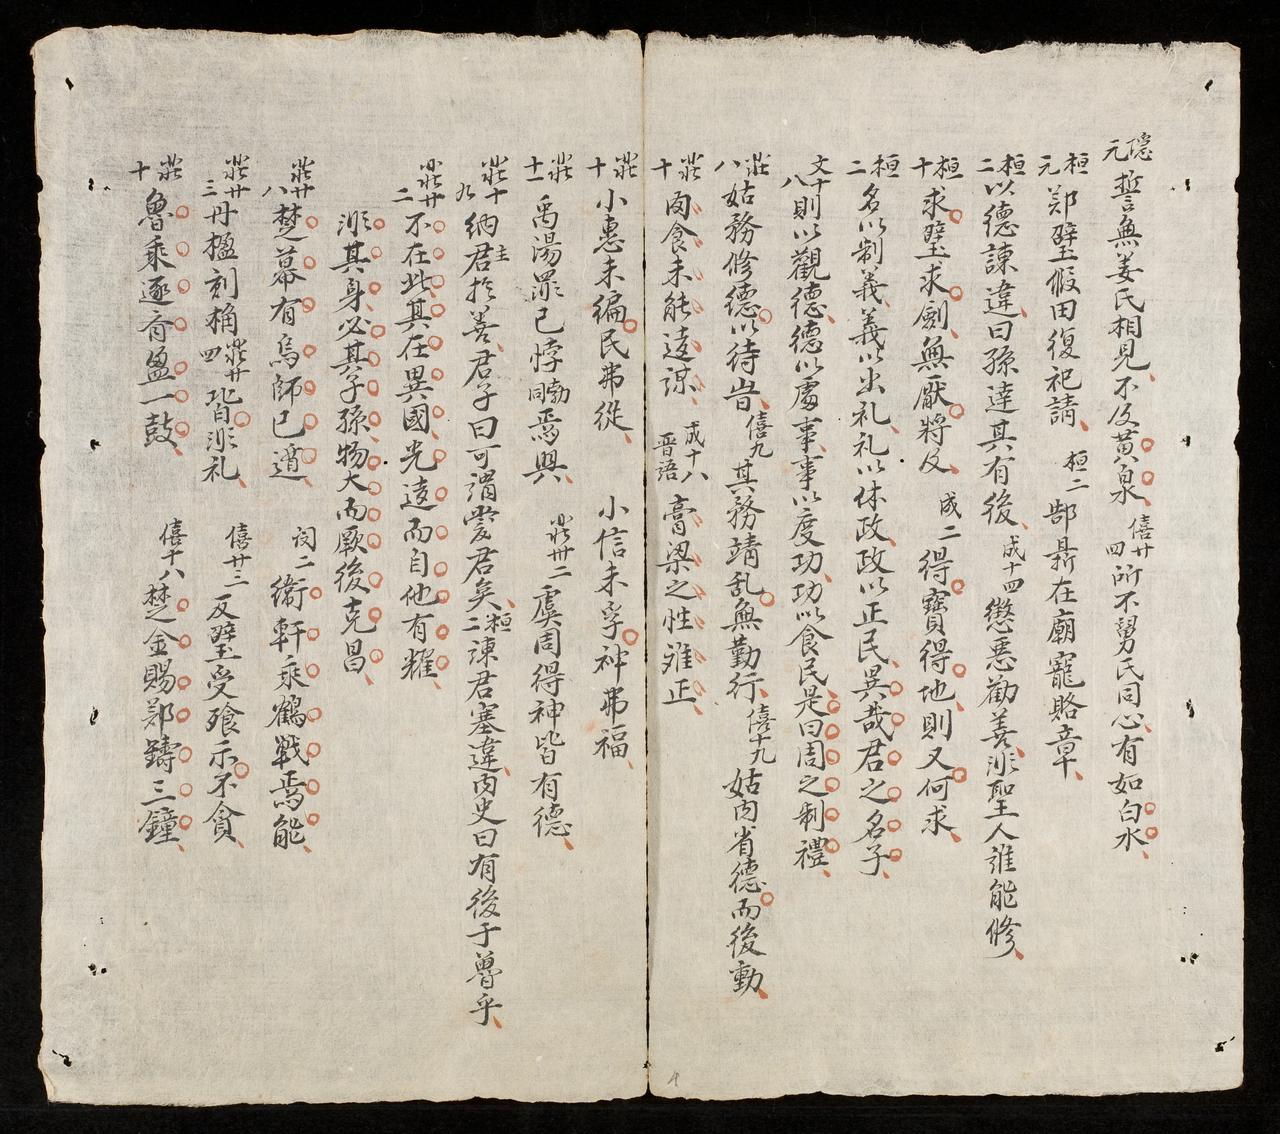 隱元 誓無姜氏相見不及黃泉 僖廿四 所不舅氏同心有如白水
桓元 鄭璧假田復祀請 桓二 郜鼎在廟寵賂章
桓二 以德諫違曰孫達其有後 成十四 懲惡勸善非聖人誰能修
桓十 求璧求劍無厭將及 成二 得寶得地則又何求
桓二 名以制義義以出礼礼以体政政以正民異哉君之名子
文十八 則以觀德德以處事事以度功功以食民是曰周之制禮
莊八 姑務修德以待旹 僖九 其務靖乱無勤行 僖十九 姑內省德而後動
莊十 肉食未能遠謀 成十八 晋語 膏梁之性难正
莊十 小惠未徧民弗從 小信未孚神弗福
莊十一 禹湯罪已悖同勃焉興 莊卅二 虞周得神皆有德
莊十九 納君於善君子曰可謂愛君矣 桓二 諫君塞違內史曰有後于魯乎
莊廿二 不在此其在異國光遠而自他有耀
非其身必其子孫物大而厥後克昌
莊廿八 楚幕有烏師已遁 闵二 衛軒乘鶴戰焉能
莊廿三 丹楹刻桷 莊廿四 皆非礼 僖廿三 反璧受飧示不貪
莊十 魯乘逐齊盈一鼓 僖十八 楚金賜鄭鑄三鐘